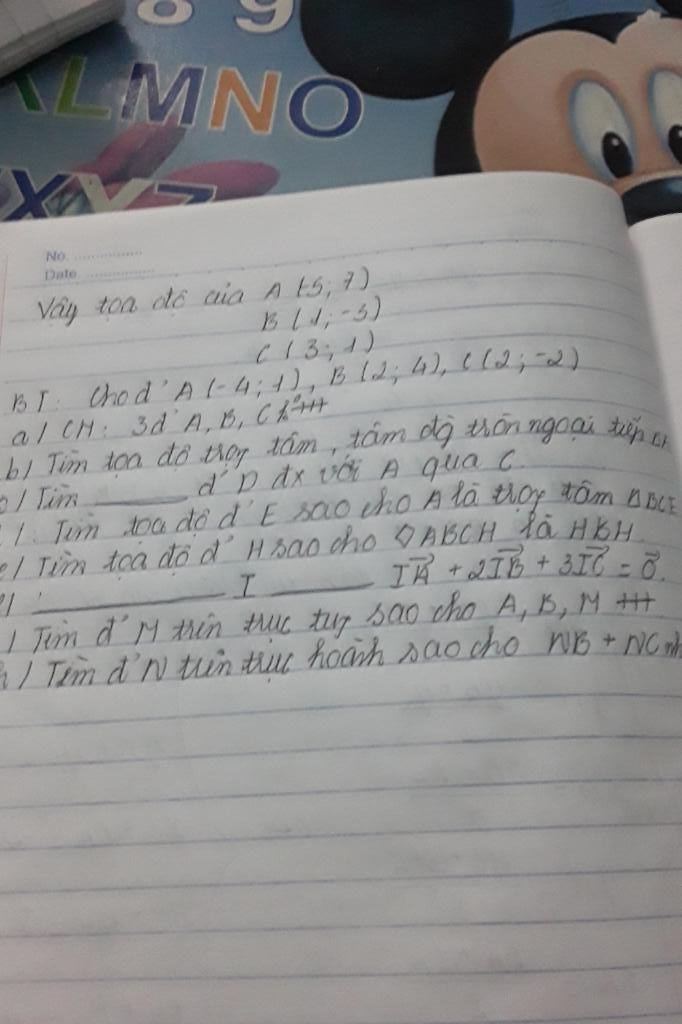 8 9
LMNO
XYZ
No. ................
Date. ................
Vậy tọa độ của A (-5; 7)
B (1; -3)
C (3; 1)
BT: Cho đ' A (-4; 1), B (2; 4), C (2; -2)
a/ CM: 3đ' A, B, C k° +++
b/ Tìm tọa độ trọg tâm, tâm đg tròn ngoại tiếp
/ Tìm ______ đ' D đx với A qua C.
/. Tìm tọa độ đ' E sao cho A là trọg tâm ΔBCE
e/ Tìm tọa độ đ' H sao cho ◇ABCH là HBH
/ ______ I ______ IA + 2IB + 3IC = 0.
/ Tìm đ' M trên trục tug sao cho A, B, M +++
h/ Tìm đ' N trên trục hoành sao cho NB + NC